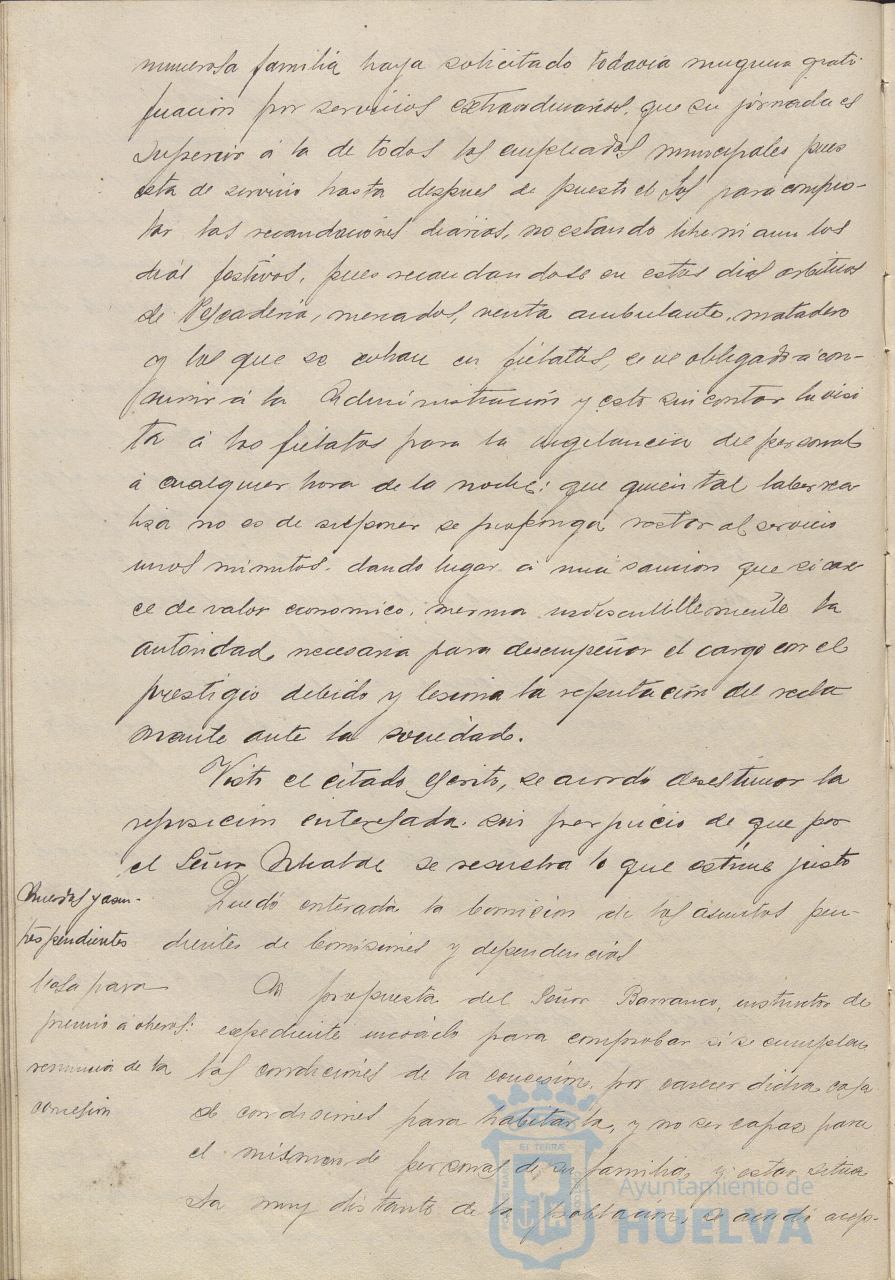 numerosa familia haya solicitado todavia ninguna grati-
ficacion por servicios extraordinarios, que su jornada es
superior á la de todos los empleados municipales pues
esta de servicio hasta despues de puesto el Sol para compro-
bar las recaudaciones diarias, no estando libre ni aun los
dias festivos, pues recaudandose en estos dias arbitrios
de Pescaderia, mercados, venta ambulante, matadero
y los que se cobran en fielatos, se ve obligado á con-
currir á la Administración y esto sin contar la visi
ta á los fielatos para la vigilancia del personal
á cualquier hora de la noche; que quien tal labor rea
liza no es de suponer se proponga restar al servicio
unos minutos, dando lugar á una sancion que si care
ce de valor economico, merma indiscutiblemente la
autoridad necesaria para desempeñar el cargo con el
prestigio debido y lesiona la reputación del recla
mante ante la sociedad.
Visto el citado escrito, se acordó desestimar la
reposición interesada sin perjuicio de que por
el Señor Alcalde se resuelva lo que estime justo
Quedó enterada la Comision de los asuntos pen-
dientes de Comisiones y dependencias
asun-
tos pendientes
A propuesta del Señor Barranco, instructor de
expediente incoado para comprobar si se cumplen
las condiciones de la concesión, por carecer dicha casa
de condiciones para habitarla, y no ser capaz para
el mismo, de personas de su familia, y estar situa
da muy distante de la población, se acordó acep-
Casa para
premio á obreros:
renuncia de la
concesion
Ayuntamiento de
HUELVA